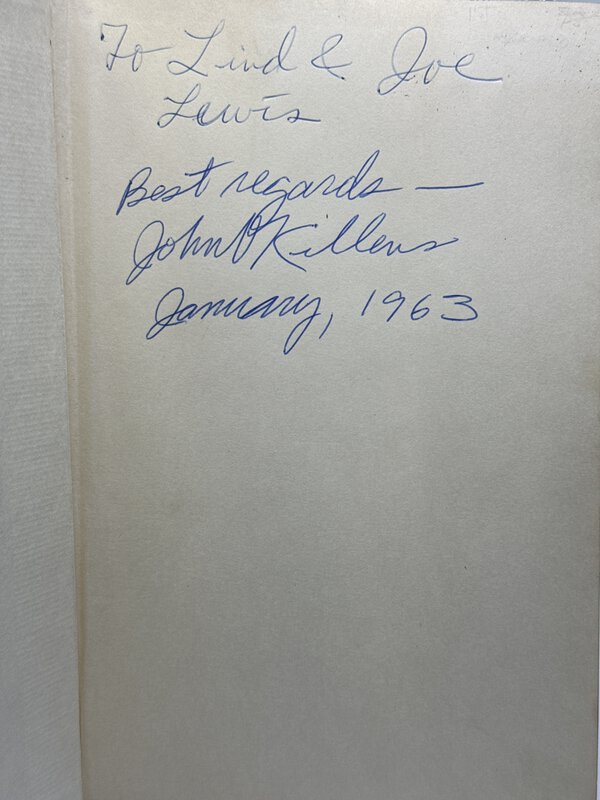 To Lind & Joe
Lewis
Best regards —
John O Killens
January, 1963